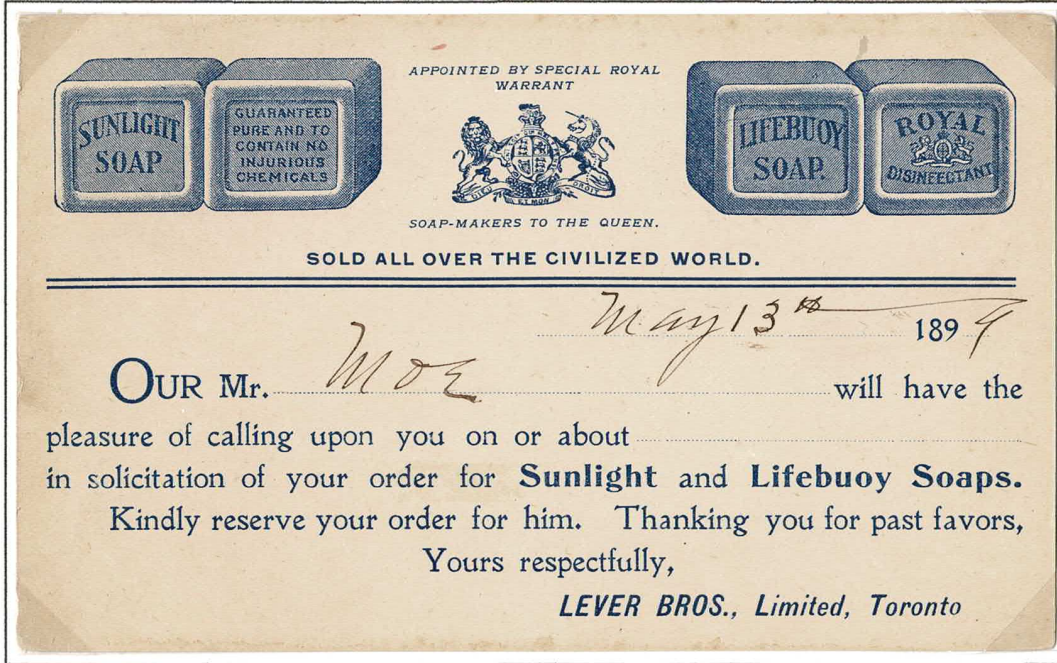 SUNLIGHT SOAP
GUARANTEED
PURE AND TO
CONTAIN NO
INJURIOUS
CHEMICALS
APPOINTED BY SPECIAL ROYAL
WARRANT
DIEU ET MON DROIT
SOAP-MAKERS TO THE QUEEN.
LIFEBUOY
SOAP.
ROYAL
DISINFECTANT
SOLD ALL OVER THE CIVILIZED WORLD.
May 13th 1899
OUR Mr. Moe will have the
pleasure of calling upon you on or about
in solicitation of your order for Sunlight and Lifebuoy Soaps.
Kindly reserve your order for him. Thanking you for past favors,
Yours respectfully,
LEVER BROS., Limited, Toronto